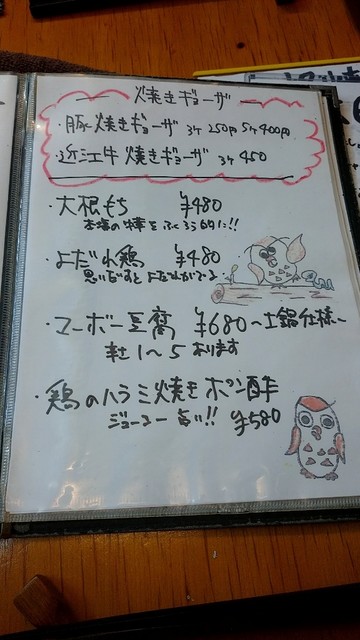 焼きギョーザ
・豚焼きギョーザ 3ケ 250円 5ケ 400円
・近江牛 焼きギョーザ 3ケ 450
・大根もち ¥480
・よだれ鶏 ¥480
思いだすと よだれがでる
・マーボー豆腐 ¥680 〜土鍋仕様〜
辛 1〜5 あります
・鶏のハラミ焼き ポン酢
ジューシー 旨い!! ¥580